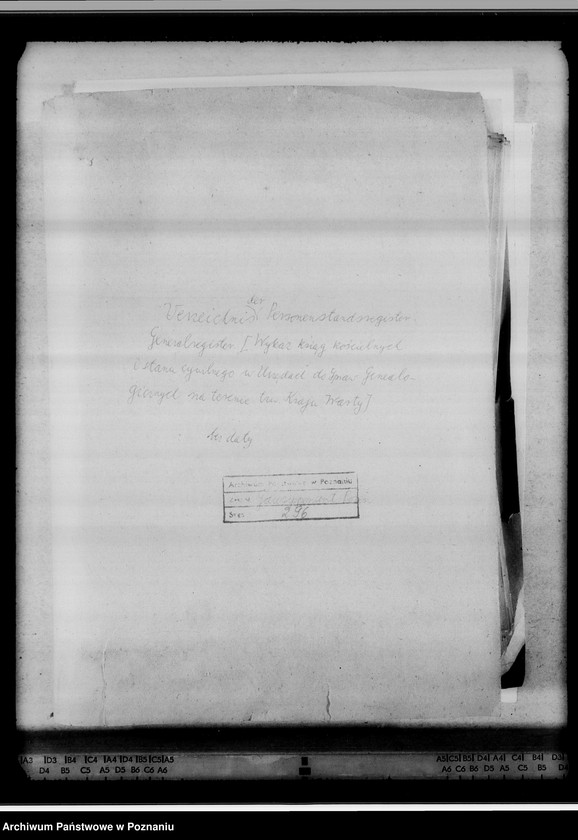 Verzeichnis der Personenstandsregister.
Generalregister [Wykaz ksiąg kościelnych
i stanu cywilnego w Urzędach do Spraw Genealo-
gicznych na terenie tzw Kraju Warty]
bez daty
Archiwum Państwowe w Poznaniu
Sygn. 296
A3 D3 B4 C4 A4 D4 B5 C5 A5
D4 B5 C5 A5 D5 B6 C6 A6
A5 C5 B5 D4 A4 C4 B4 D3
A6 C6 B6 D5 A5 C5 B5 D4
Archiwum Państwowe w Poznaniu